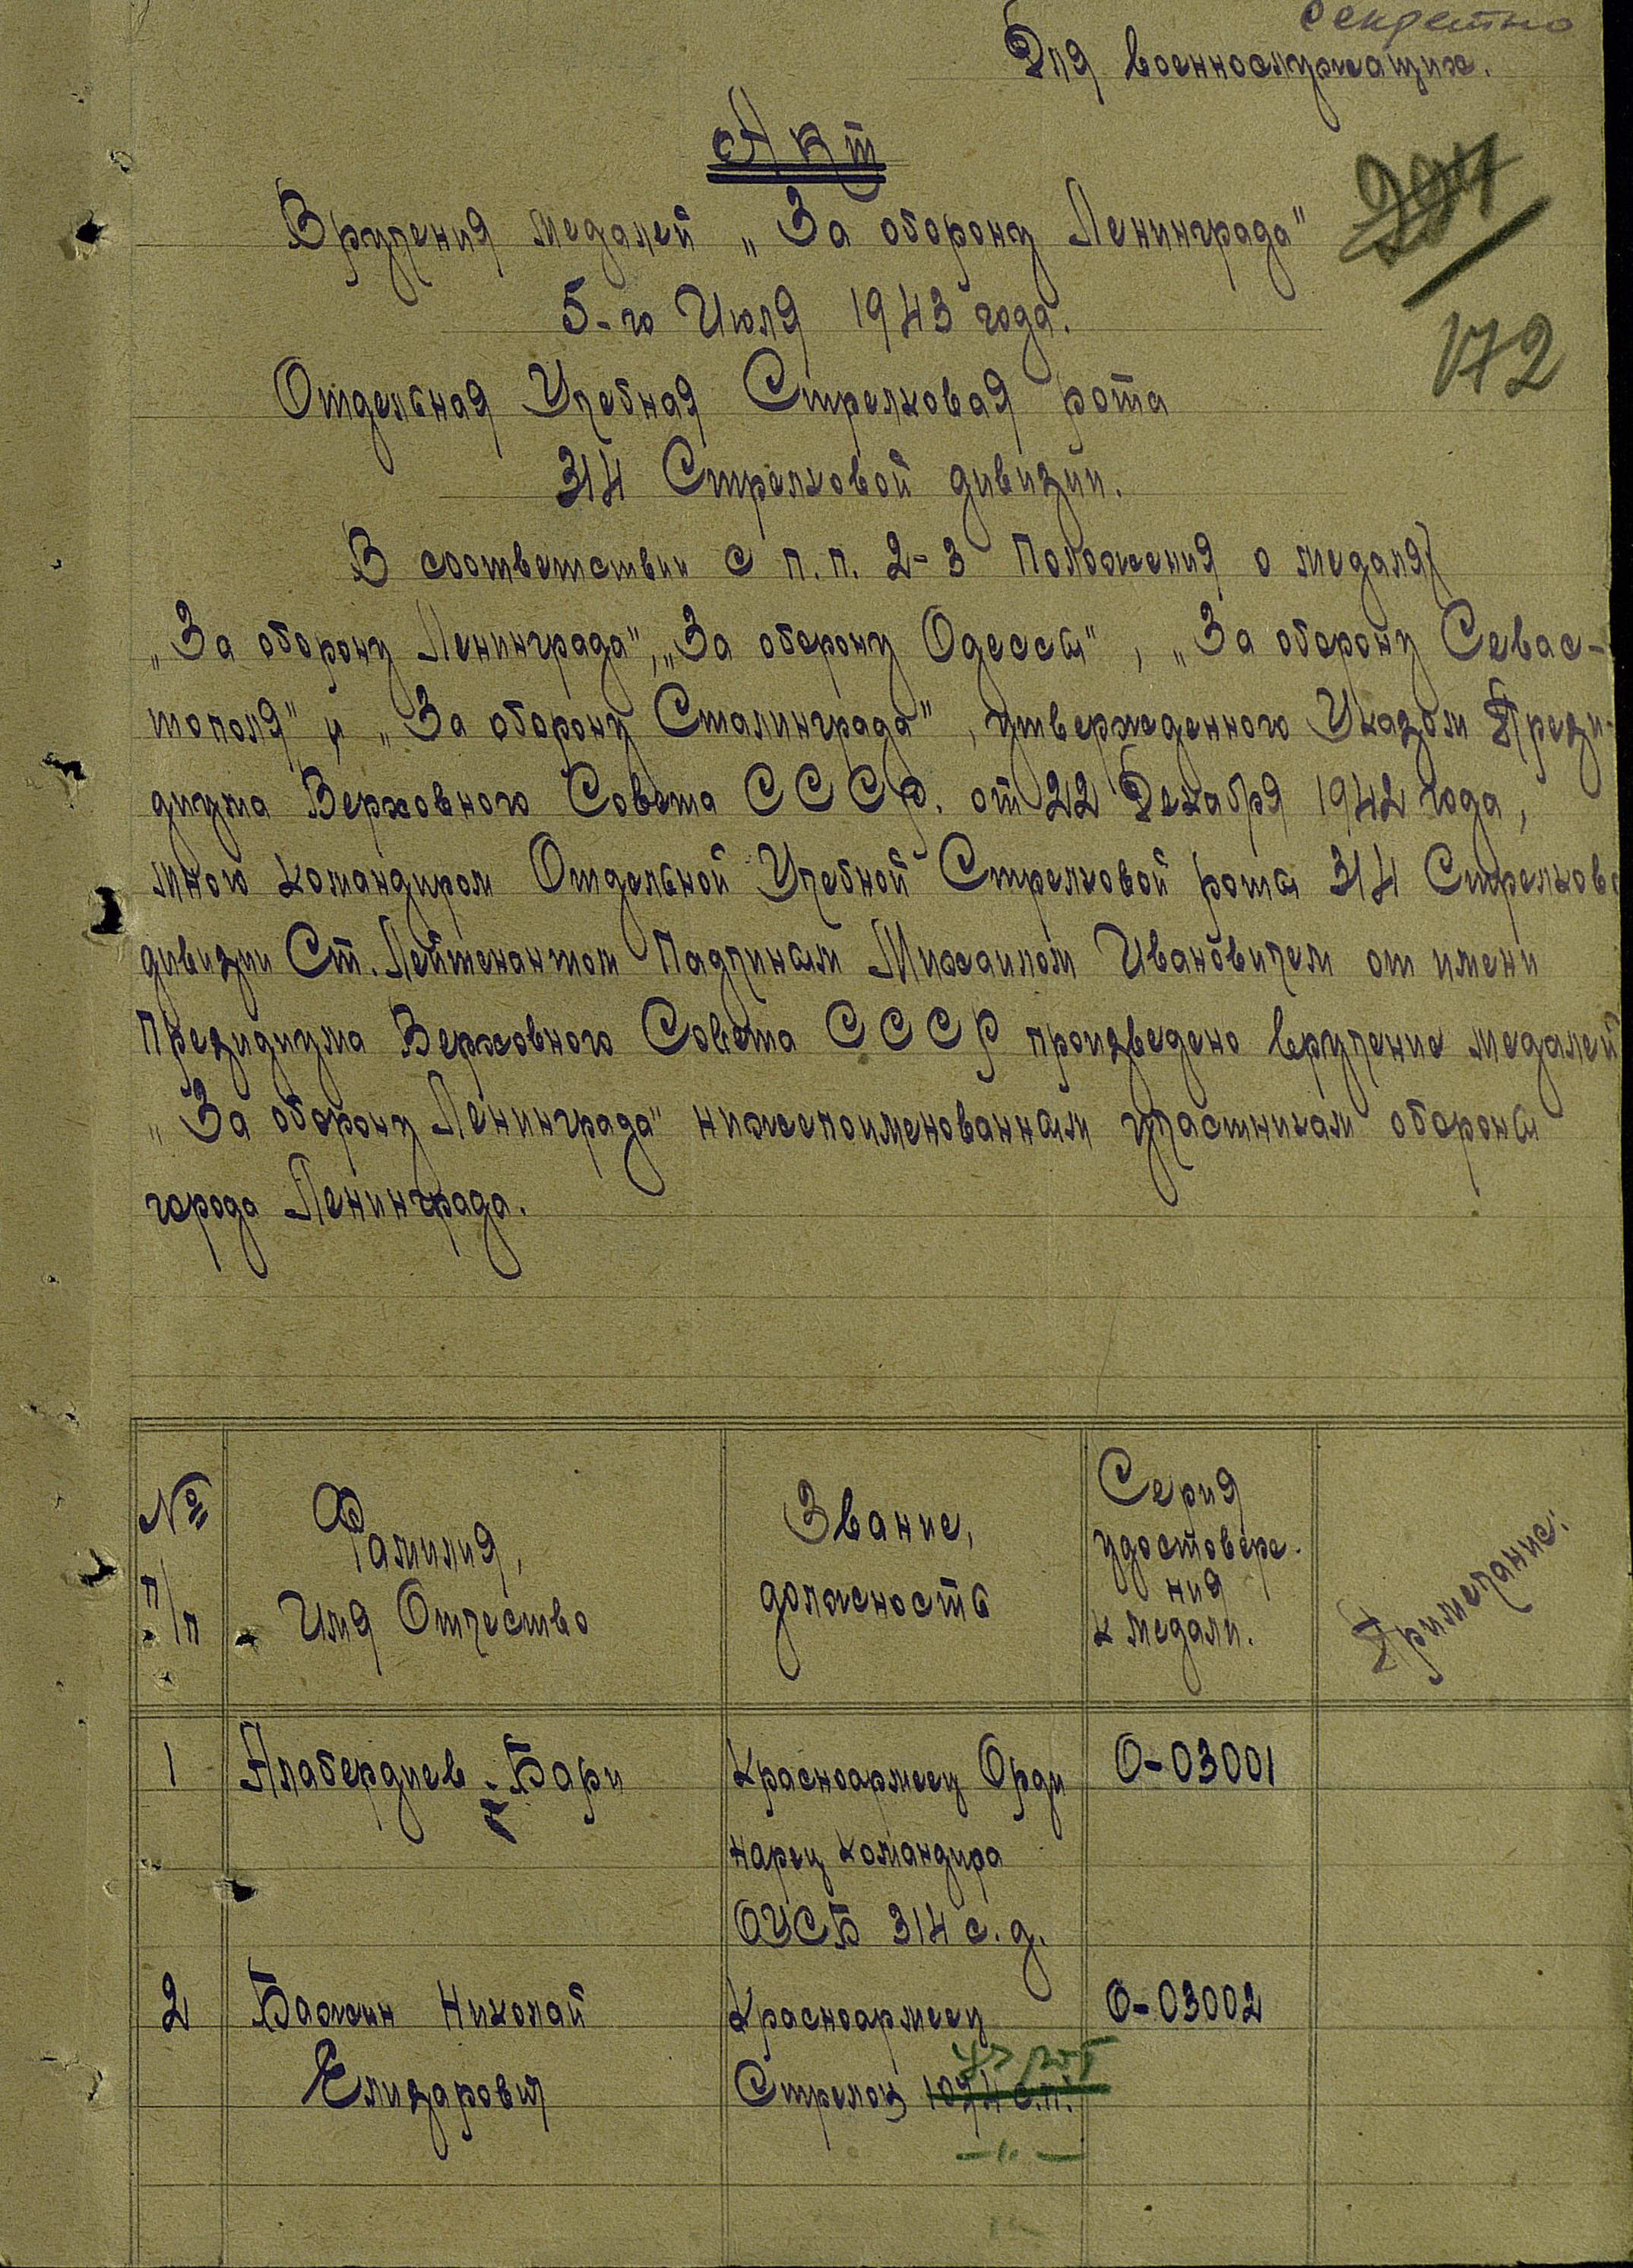 секретно
Для военнослужащих.
Акт
Вручения медалей „За оборону Ленинграда"
5-го Июля 1943 года.
172
Отдельная Учебная Стрелковая рота
314 Стрелковой дивизии.
В соответствии с п.п. 2-3 Положения о медалях
„За оборону Ленинграда", „За оборону Одессы", „За оборону Севас-
тополя" и „За оборону Сталинграда", утвержденного Указом Прези-
диума Верховного Совета СССР. от 22 Декабря 1942 года,
мною командиром Отдельной Учебной Стрелковой роты 314 Стрелково
дивизии Ст. Лейтенантом Падчиным Михаилом Ивановичем от имени
Президиума Верховного Совета СССР произведено вручение медалей
„За оборону Ленинграда" нижепоименованным участникам обороны
города Ленинграда.
№ п/п
Фамилия,
Имя Отчество
Звание,
должность
Серия
удостовере-
ния
к медали.
Примечание.
1 Алабердиев Бари Красноармеец Орди О-03001
нарец командира
ОУСБ 314 с.д.
2 Бажин Николай Красноармеец О-03002
Елизарович Стрелок 1074 с.п.